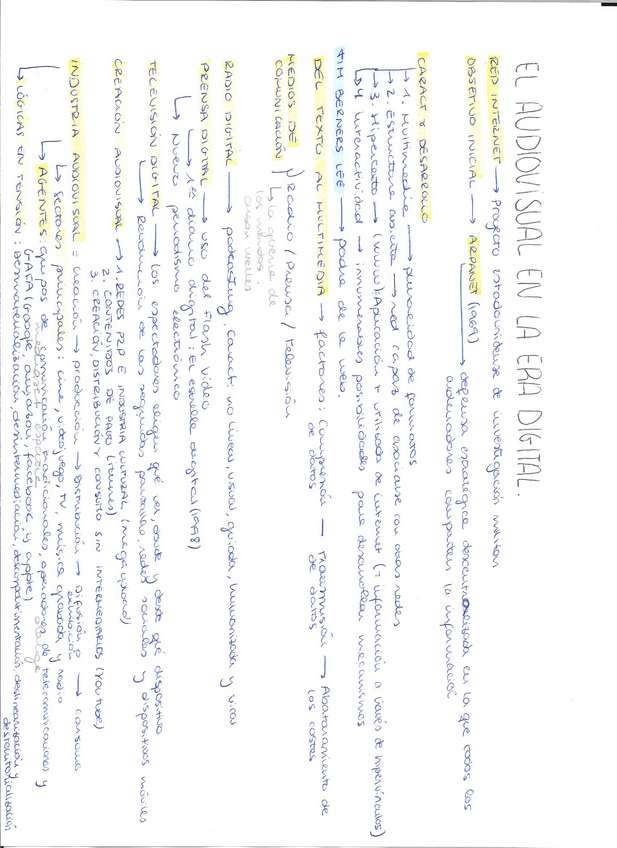 EL AUDIOVISUAL EN LA ERA DIGITAL.
RED INTERNET → Proyecto estadounidense de investigación militar
OBJETIVO INICIAL → ARPANET (1969) → defensa estratégica descentralizada en la que todos los
ordenadores comparten la información
CARACT Y DESARROLLO
↳ 1. Multimedia → pluralidad de formatos
↳ 2. Estructura abierta → red capaz de asociarse con otras redes
↳ 3. Hipertexto → (www) (Aplicación + utilizada de internet (= información a través de hipervínculos)
↳ 4. Interactividad → innumerables posibilidades para desarrollar mecanismos
TIM BERNERS LEE → padre de la web.
DEL TEXTO AL MULTIMEDIA → factores: Compresión de datos → Transmisión de datos → Abaratamiento de los costes
MEDIOS DE COMUNICACIÓN } Radio / Prensa / Televisión
↳ la guerra de
los mundos.
orson welles
RADIO DIGITAL → podcasting, caract. no lineal, visual, guiada, humanizada y viral
PRENSA DIGITAL → uso del Flash Video
↳ 1er diario digital: El estrella digital (1998)
↳ Nuevo periodismo electrónico
TELEVISIÓN DIGITAL → los espectadores eligen qué ver, dónde y desde qué dispositivo
↳ Revolución de las segundas pantallas, redes sociales y dispositivos móviles
CREACIÓN AUDIOVISUAL → 1. REDES P2P E INDUSTRIA CULTURAL (Megaupload)
2. CONTENIDOS DE PAGO (iTunes)
3. CREACIÓN, DISTRIBUCIÓN Y CONSUMO SIN INTERMEDIARIOS (YouTube)
INDUSTRIA AUDIOVISUAL = creación → producción → distribución → Difusión o exhibición → consumo
↳ Sectores principales: cine, videojuego, TV, música grabada y radio
↳ AGENTES: grupos de comunicación tradicionales, operadores de telecomunicaciones y
mediaset españa orange
GAFA (Google, amazon, facebook, y apple)
↳ LÓGICAS EN TENSIÓN: Desmaterialización, desintermediación, descompartimentación, deslinearización y
desterritorialización